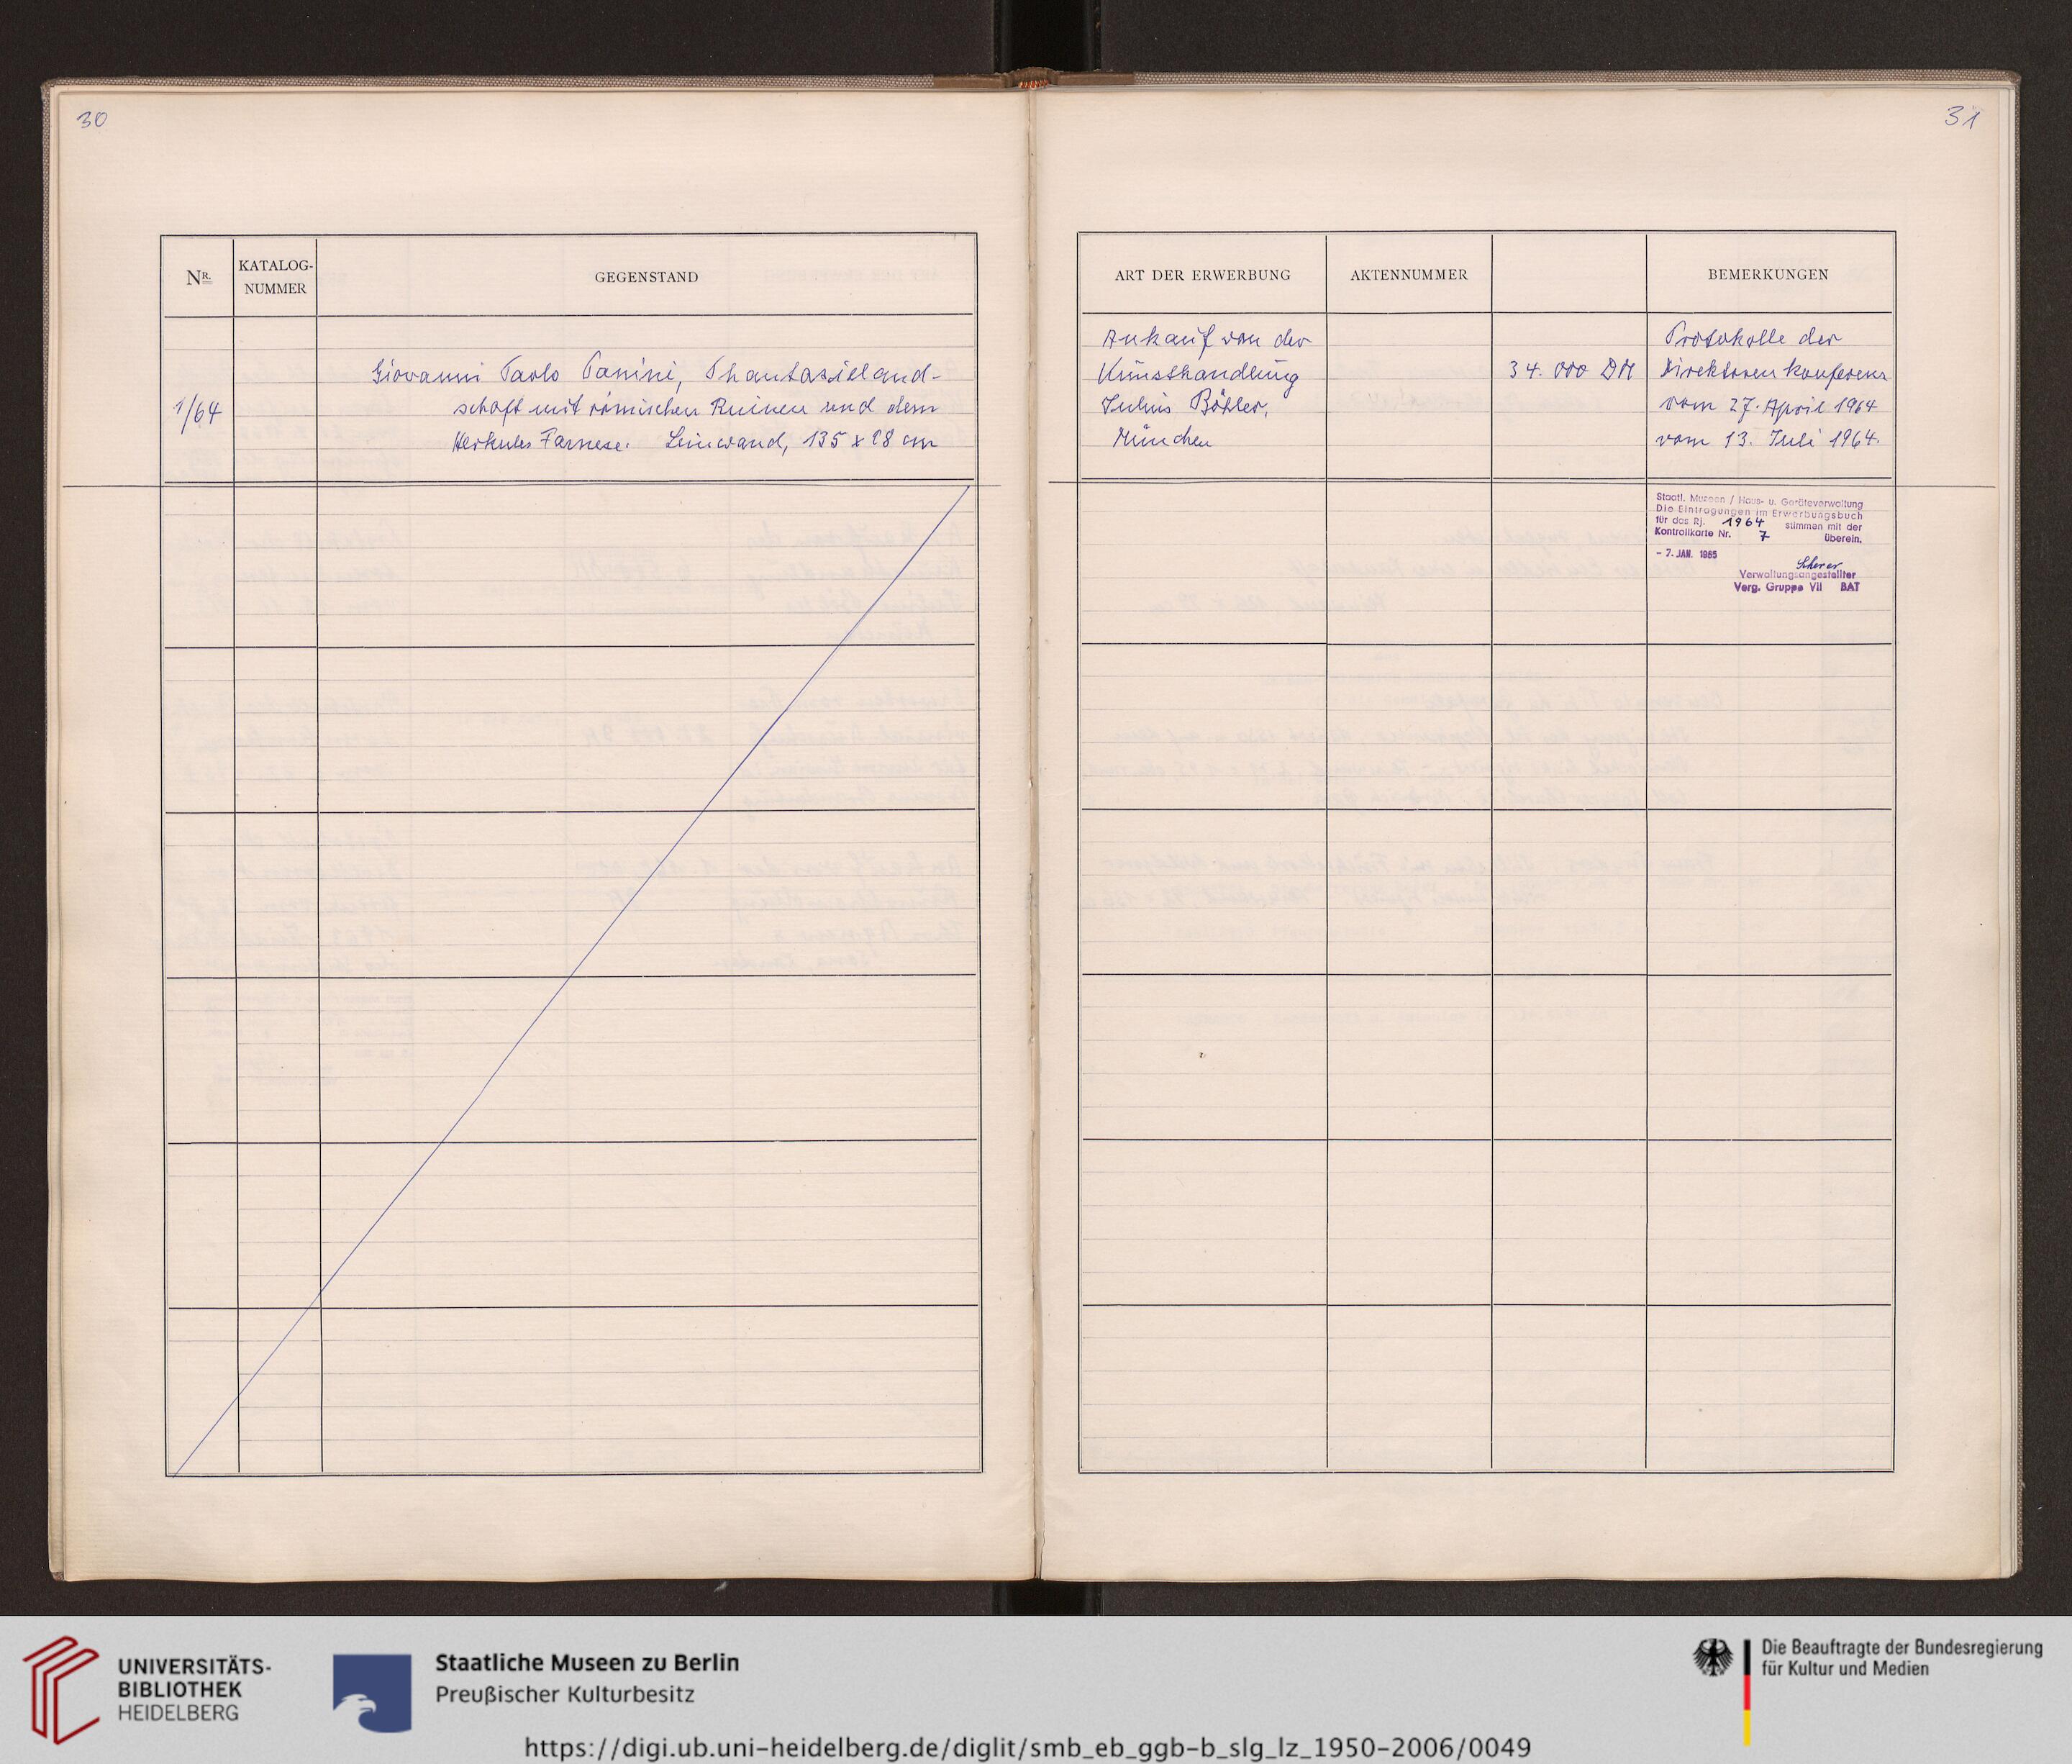 30
31
NR.
KATALOG-
NUMMER
GEGENSTAND
1/64
Giovanni Paolo Panini, Phantasieland-
schaft mit römischen Ruinen und dem
Herkules Farnese. Leinwand, 135 x 98 cm
ART DER ERWERBUNG
AKTENNUMMER
BEMERKUNGEN
Ankauf von der
Kunsthandlung
Julius Böhler,
München
34.000 DM
Protokolle der
Direktorenkonferenz
vom 27. April 1964
vom 13. Juli 1964.
Staatl. Museen / Haus- u. Geräteverwaltung
Die Eintragungen im Erwerbungsbuch
für das Rj. 1964 stimmen mit der
Kontrollkarte Nr. 7 überein.
- 7. JAN. 1965
Scherer
Verwaltungsangestellter
Verg. Gruppe VII BAT
UNIVERSITÄTS-
BIBLIOTHEK
HEIDELBERG
Staatliche Museen zu Berlin
Preußischer Kulturbesitz
Die Beauftragte der Bundesregierung
für Kultur und Medien
https://digi.ub.uni-heidelberg.de/diglit/smb_eb_ggb-b_slg_lz_1950-2006/0049